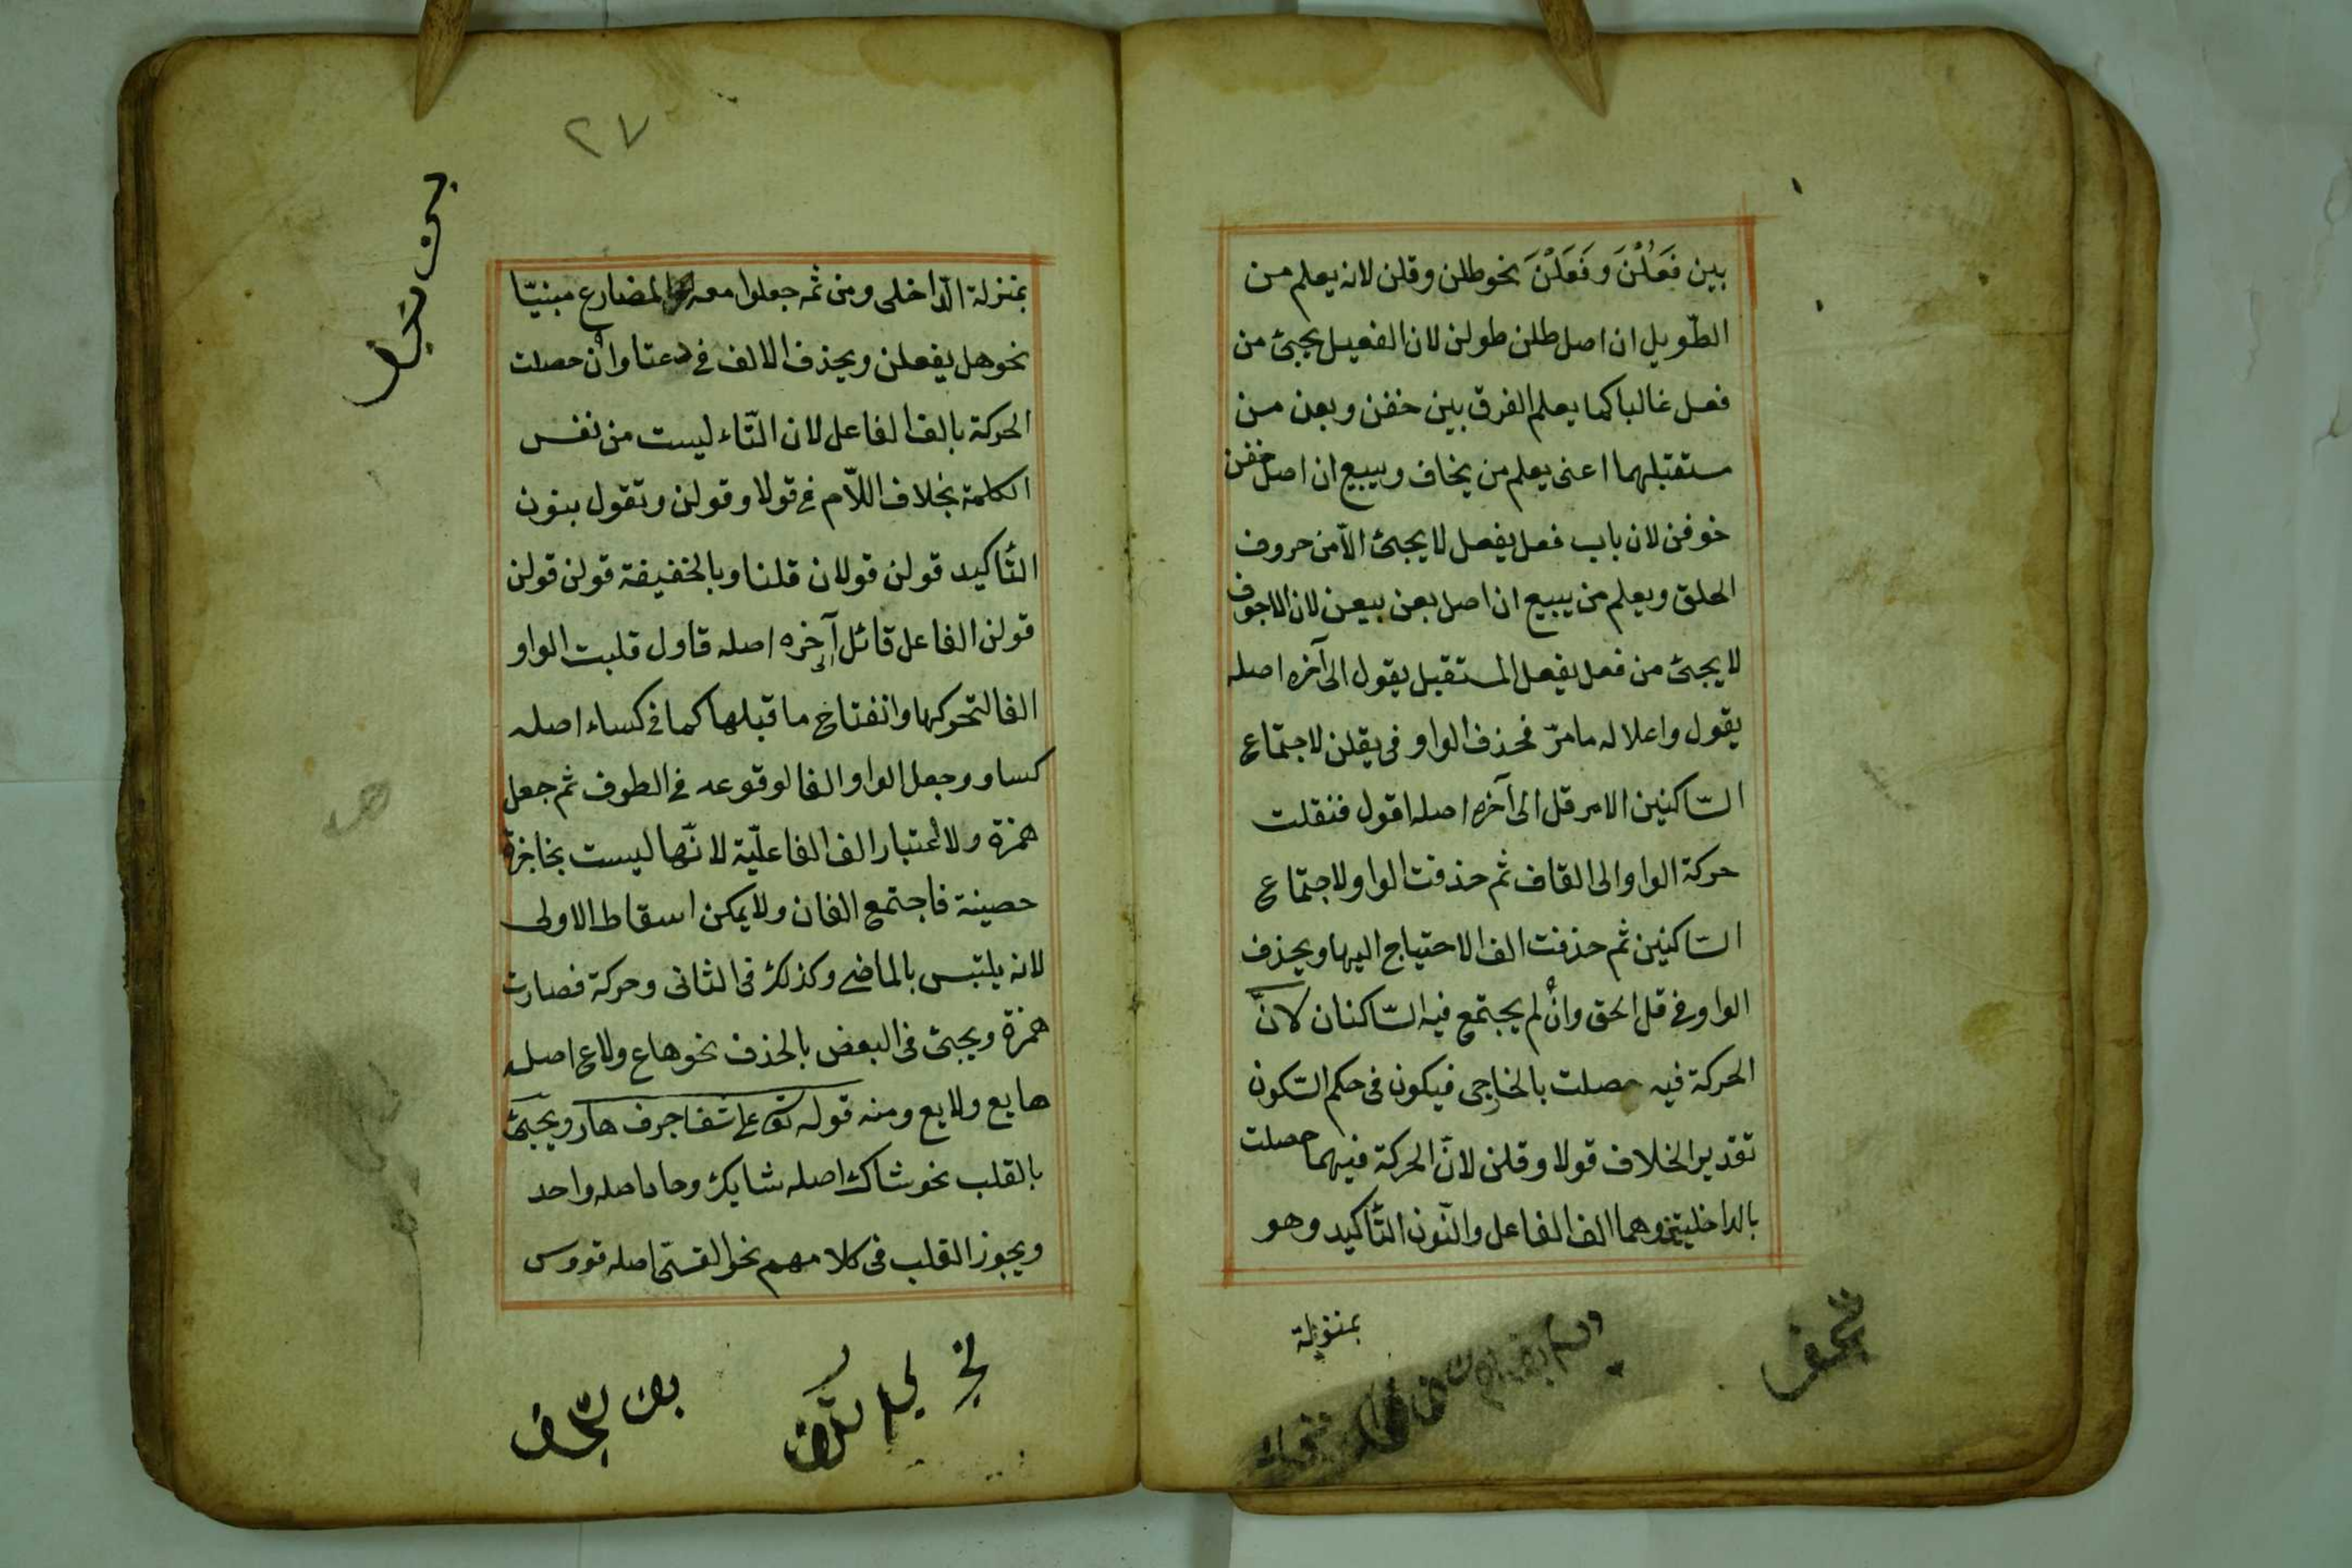 بين فَعَلْنَ و فَعَلْنَ نحو طلن وقلن لانه يعلم من
الطّويل ان اصل طلن طولن لان الفعيل يجئ من
فعل غالبا كما يعلم الفرق بين خفن و بعن من
ستقبلهما اعنى يعلم من يخاف ويبيع ان اصل خفن
خوفن لان باب فعل يفعل لا يجئ الّا من حروف
الحلق ويعلم من يبيع ان اصل بعن بيعن لان الاجوف
لا يجئ من فعل يفعل المستقبل يقول الى آخره اصله
يقول واعلاله مامرّ فحذف الواو فى يقلن لاجتماع
السّاكنين الامر قل الى آخره اصله اقول فنقلت
حركة الواو الى القاف ثم حذفت الواو لاجتماع
السّاكنين ثم حذفت الف الاحتياج اليها ويحذف
الواو فى قل الحق وانْ لم يجتمع فيه السّاكنان لانّ
الحركة فيه حصلت بالخارجى فيكون فى حكم السّكون
تقدير الخلاف قولا وقلن لانّ الحركة فيهما حصلت
بالداخليتين وهما الف الفاعل والنّون التّاكيد وهو
بمنزلة
٢٧
بمنزلة الدّاخلى ومن ثم جعلوا معه المضارع مبنيّا
نحو هل يفعلن ويحذف الالف فى دعتا وانْ حصلت
الحركة بالف الفاعل لان التّاء ليست من نفس
الكلمة بخلاف اللّام فى قولا وقولن وتقول بنون
التّاكيد قولن قولان قلنا وبالخفيفة قولن قولن
قولن الفاعل قائل الى آخره اصله قاول قلبت الواو
الفا لتحركها وانفتاح ما قبلها كما فى كساء اصله
كساو وجعل الواو الفا لوقوعه فى الطرف ثم جعل
همزة ولا اعتبار الف الفاعليّة لانّها ليست بحاجزة
حصينة فاجتمع الفان ولا يمكن اسقاط الاولى
لانه يلتبس بالماضى وكذلك فى الثانى وحركة فصارت
همزة ويجئ فى البعض بالحذف نحو هاع ولاع اصله
هايع ولايع ومنه قوله تع على شفا جرف هار ويجئ
بالقلب نحو شاك اصله شايك وحاد اصله واحد
ويجوز القلب فى كلامهم نحو القسىّ اصله قووس